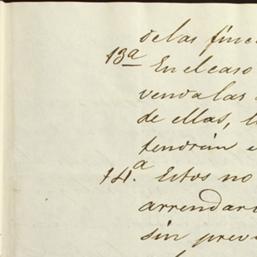 de las finc
13ª En el caso
venda las
de ellas, l
tendrán e
14.ª Estos no
arrendar
sin prev